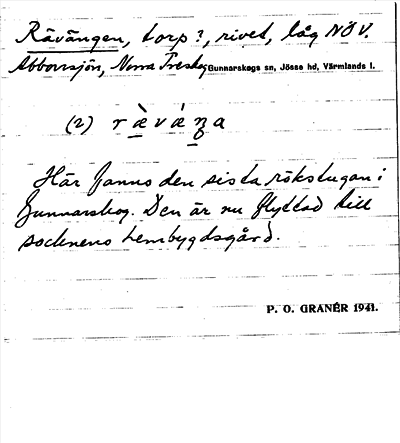 Rävängen, torp?, rivet, låg NÖV.
Abborrsjön, Norra Treskog Gunnarskogs sn, Jösse hd, Värmlands l.
(2) r æ̀ v á ŋ a
Här fanns den sista rökstugan i
Gunnarskog. Den är nu flyttad till
socknens hembygdsgård.
P. O. GRANÉR 1941.